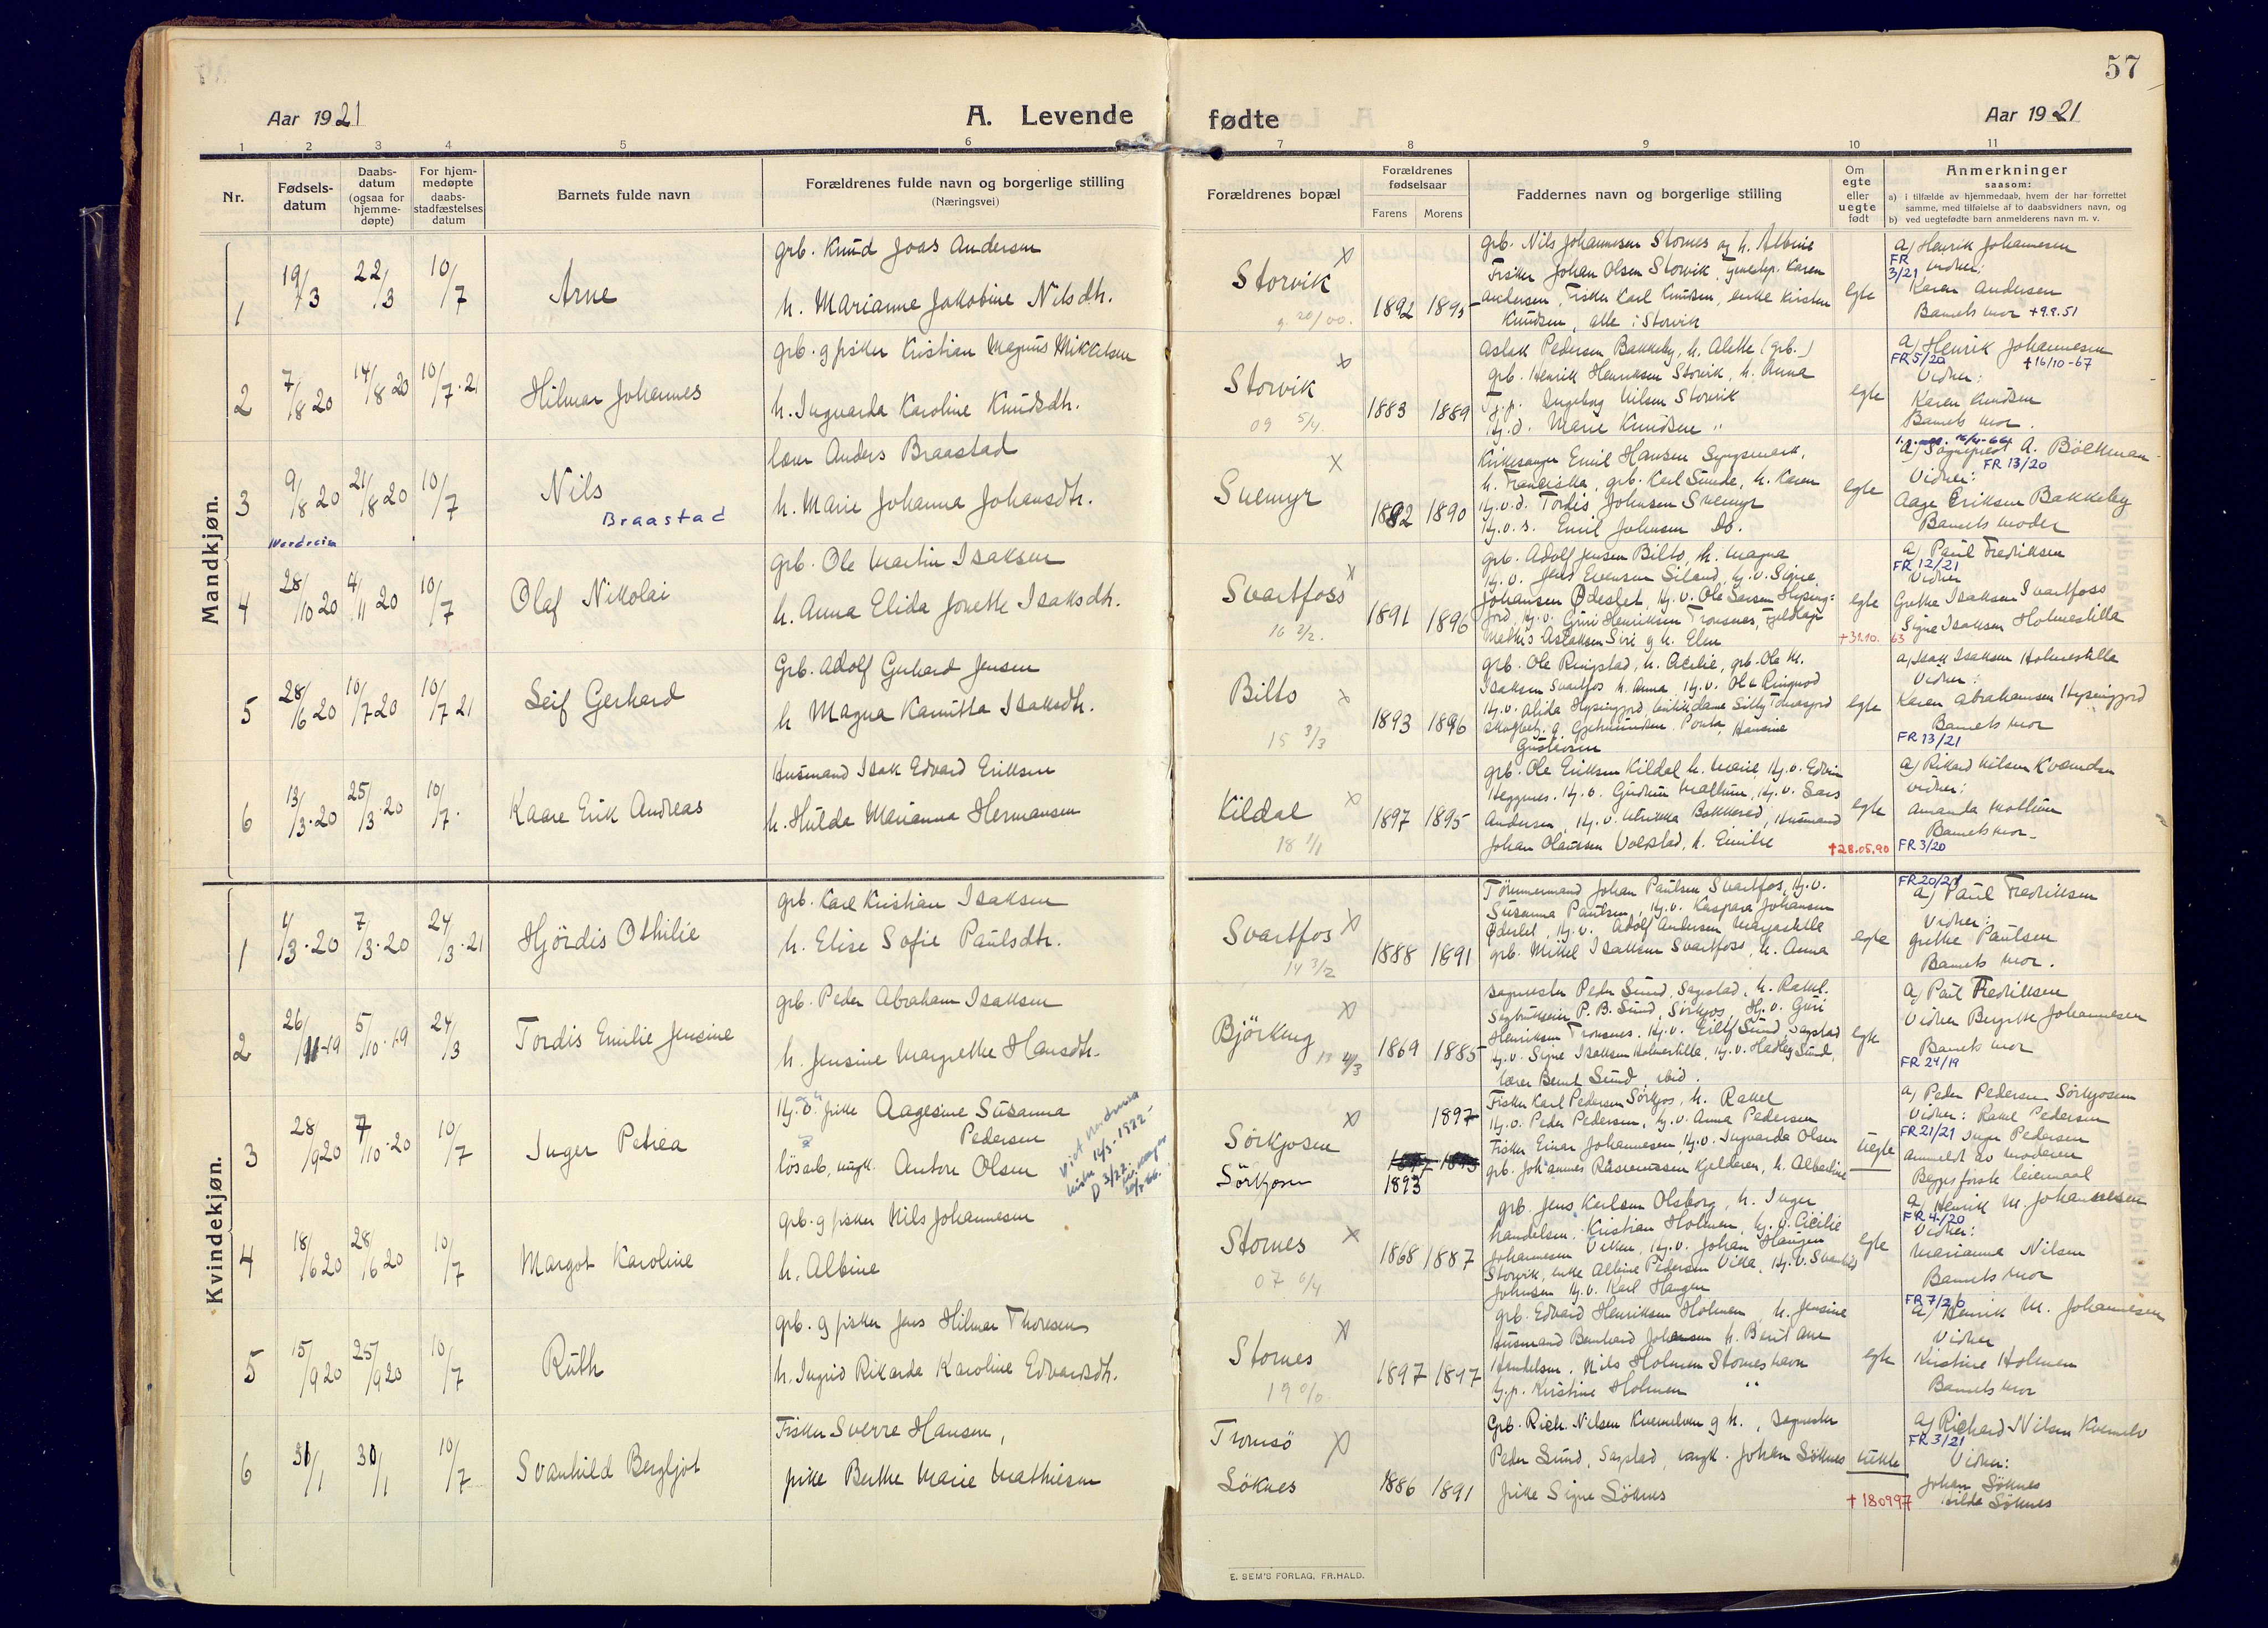 57
Aar 1921
A. Levende
fødte
Aar 1921
1 2 3 4 5 6 7 8 9 10 11
Nr.
Fødsels-
datum
Daabs-
datum
(ogsaa for
hjemme-
døpte)
For hjem-
medøpte
daabs-
stadfæstelses
datum
Barnets fulde navn
Forældrenes fulde navn og borgerlige stilling
(Næringsvei)
Forældrenes bopæl
Forældrenes
fødselsaar
Farens
Morens
Faddernes navn og borgerlige stilling
Om
egte
eller
uegte
født
Anmerkninger
saasom:
a) i tilfælde av hjemmedaab, hvem der har forrettet
samme, med tilføielse af to daabsvidners navn, og
b) ved uegtefødte barn anmelderens navn m. v.
Mandkjøn.
1
19/3
22/3
10/7
Arne
grb. Knud Joas Andersen
h. Marianne Jakobine Nilsdtr.
Storvik
1892 1895
grb. Nils Johannesen Stornes og h. Albine
Fisker Johan Olsen Storvik, Karen
Andersen, Fisker Karl Knudsen, enke Kirsten
Knudsen, alle i Storvik
egte
a) Henrik Johannesen
FR
3/21 vidner:
Karen Andersen
Barnets mor +9.9.51
2
7/8 20
14/8 20
10/7.21
Hilmar Johannes
grb. g fisker Kristian Magnus Mikkelsen
h. Ingvarda Karoline Knudsdtr.
Storvik
09 5/4.
1883 1889
Aslak Pedersen Bakkeby, h. Alette (grb.)
grb. Henrik Henriksen Storvik, h. Anna
Tj.p. Ingeborg Nilsen Storvik
Hj.d. Marie Knudsen "
egte
a) Henrik Johannesen
FR 5/20 +16/10-67
Vidner:
Karen Knudsen
Barnets mor.
3
9/8 20
21/8 20
10/7
Nils
Braastad
lærer Anders Braastad
h. Marie Johanna Johansdtr.
Svemyr
1882 1890
Kirkesanger Emil Hansen Lyngsmark,
h. Franciska, grb. Karl Sunde, h. Karen
Hj.v.d. Tordis Johnsen Svemyr
Hj.v.s. Emil Johnsen Do.
egte
a) Sogneprest A. Bolkman
FR 13/20
Vidner:
Aage Eriksen Bakkeby
Barnets moder
Nordreisa
4
28/10 20
4/11 20
10/7
Olaf Nikolai
grb. Ole Martin Isaksen
h. Anna Elida Jonette Isaksdtr.
Svartfoss
16 2/2.
1891 1896
grb. Adolf Jensen Bilto, h. Magna
Hj.v. Jens Evensen Siland, Hj.v. Signe
Johansen Ødeslet, Hj.v. Ole Larsen Hysing-
jord, Hj.v. Guri Henriksen Tronsnes, Fjeldlap
Mathis Aslaksen Siri g h. Elen
egte
+31.10.63
a) Paul Fredriksen
FR 12/21
Vidner
Grethe Isaksen Svartfoss
Signe Isaksen Holmestilla
5
28/6 20
10/7 20
10/7 21
Leif Gerhard
Grb. Adolf Gerhard Jensen
h Magna Kamitta Isaksdtr.
Bilto
15 3/3
1893 1896
grb. Ole Ringstad, h. Cecilie, grb. Ole M.
Isaksen Svartfos h. Anna, Hj.v. Ole Ringnod
Hj.v. Alida Hysingjord, butikdame Silly Tømasjord
skogbetj. g. Gjetmunden, Ponta, Hansine
Gustavsen
egte
a) Isak Isaksen Holmestilla
Vidner:
Karen Abrahamsen Hysingjord
Barnets mor
FR 13/21
6
13/3.20
25/3.20
10/7.
Kaare Erik Andreas
Husmand Isak Edvard Eriksen
h. Hulda Marianna Hermansen
Kildal
18 1/1
1897 1895
grb. Ole Eriksen Kildal h. Marie, Hj.v. Edvin
Heggenes. Hj.v. Gudrun Mollum, Hj.v. Lars
Andersen, Hj.v. Ulrikka Bakkered, Husmand
Johan Olaussen Volstad, h. Emilie
egte
+28.05.90
a) Rikard Nilsen Kvænelven
vidner:
Amanda Mollum
Barnets mor
FR 3/20
Kvindekjøn.
1
1/3.20
7/3.20
24/3.21
Hjördis Othilie
grb. Karl Kristian Isaksen
h. Elise Sofie Paulsdtr.
Svartfos
14 3/2
1888 1891
Tømmermand Johan Paulsen Svartfos, Hj.v.
Susanna Paulsen, Hj.v. Kaspara Johansen
Ødeslet, Hj.v. Adolf Andersen
grb. Mikkel Isaksen Svartfoss, h. Anna
egte
FR 20/21
a) Paul Fredriksen
Vidner:
grethe Paulsen
Barnets mor.
2
26/-19
5/10.19
24/3
Tordis Emilie Jensine
grb. Peder Abraham Isaksen
h. Jensine Margrethe Hansdtr.
Björkeng
1869 1885
sagmester Peder Sund, Sagstad, h. Rakel.
Sagbrukseier P. B. Sund, Sørkjos, Hj.v. Guri
Henriksen Tronsnes. Hj.v. Eilif Sund Sagstad
Hj.v. Signe Isaksen Holmestilla, Hj.v. Hadleg Sund,
lærer Bernt Sund ibid.
egte
a) Paul Fredriksen
Vidner Bergitte Johannesen
Barnets mor
FR 24/19
3
28/9 20
7/10.20
10/7
Inger Petrea
Hj.v. pike Aagesine Susanna
Pedersen
løsarb, ungk. Antore Olsen
Sørkjosen
Sörkjosen
1897
1893
Fisker Karl Pedersen Sörkjos, h. Rakel
Hj.v. Peder Pedersen, Hj.v. Anna Pedersen
Fisker Einar Johannesen, Hj.v. Ingvarda Olsen
grb. Johannes Rasmussen Kjelderen, h. Albertine
uegte
a) Peder Pedersen Sørkjosen
Vidner: Rakel Pedersen
FR 21/21 Inger Pedersen
anmeldt av moderen
Begges første leiermaal
4
18/6 20
28/6 20
10/7
Margot Karoline
grb. g fisker Nils Johannesen
h. Albine
Stornes
07 0/4
1868 1887
grb. Jens Karlsen Olsborg, h. Inger
handelsm. Kristian Holmen, Hj.v. Cicilie
Johannesen Viken, Hj.v. Johan Haugen
Storvik, enke Albine Pedersen Vika, Hj.v. Svanhild
Johnsen Hj.v. Karl Haugen
egte
a) Henrik M. Johannesen
FR 4/20
Vidner:
Marianna Nilsen
Barnets mor
5
15/9 20
25/9 20
10/7
Ruth
grb. g fisker Jens Hilmar Thoresen
h. Ingrid Rikarda Karoline Edvardsdtr.
Stornes
19 0/0
1897 1897
grb. Edvard Henriksen Holmen h. Jensine
Husmand Bernhard Johansen h. Berit Ane
Handelsm. Nils Holmen Stornes havn
tj.p. Kirstine Holmen "
egte
FR 7/20
a) Henrik M. Johannesen
Vidner
Kirstine Holmen
Barnets mor
6
31/1
30/1
10/7
Svanhild Bergljot
Fisker Sverre Hansen,
pike Berthe Marie Mathisen
Tromsö
Söknes
1886 1891
Grb. Rich. Nilsen Kvænelven g h., sagmester
Peder Sund, Sagstad, ungk. Johan Söknes
pike Signe Söknes
uekte
+180997
a) Richard Nilsen Kvænelv
FR 3/21
Vidner:
Johan Söknes
Hilda Söknes
E. SEM'S FORLAG, FR.HALD.